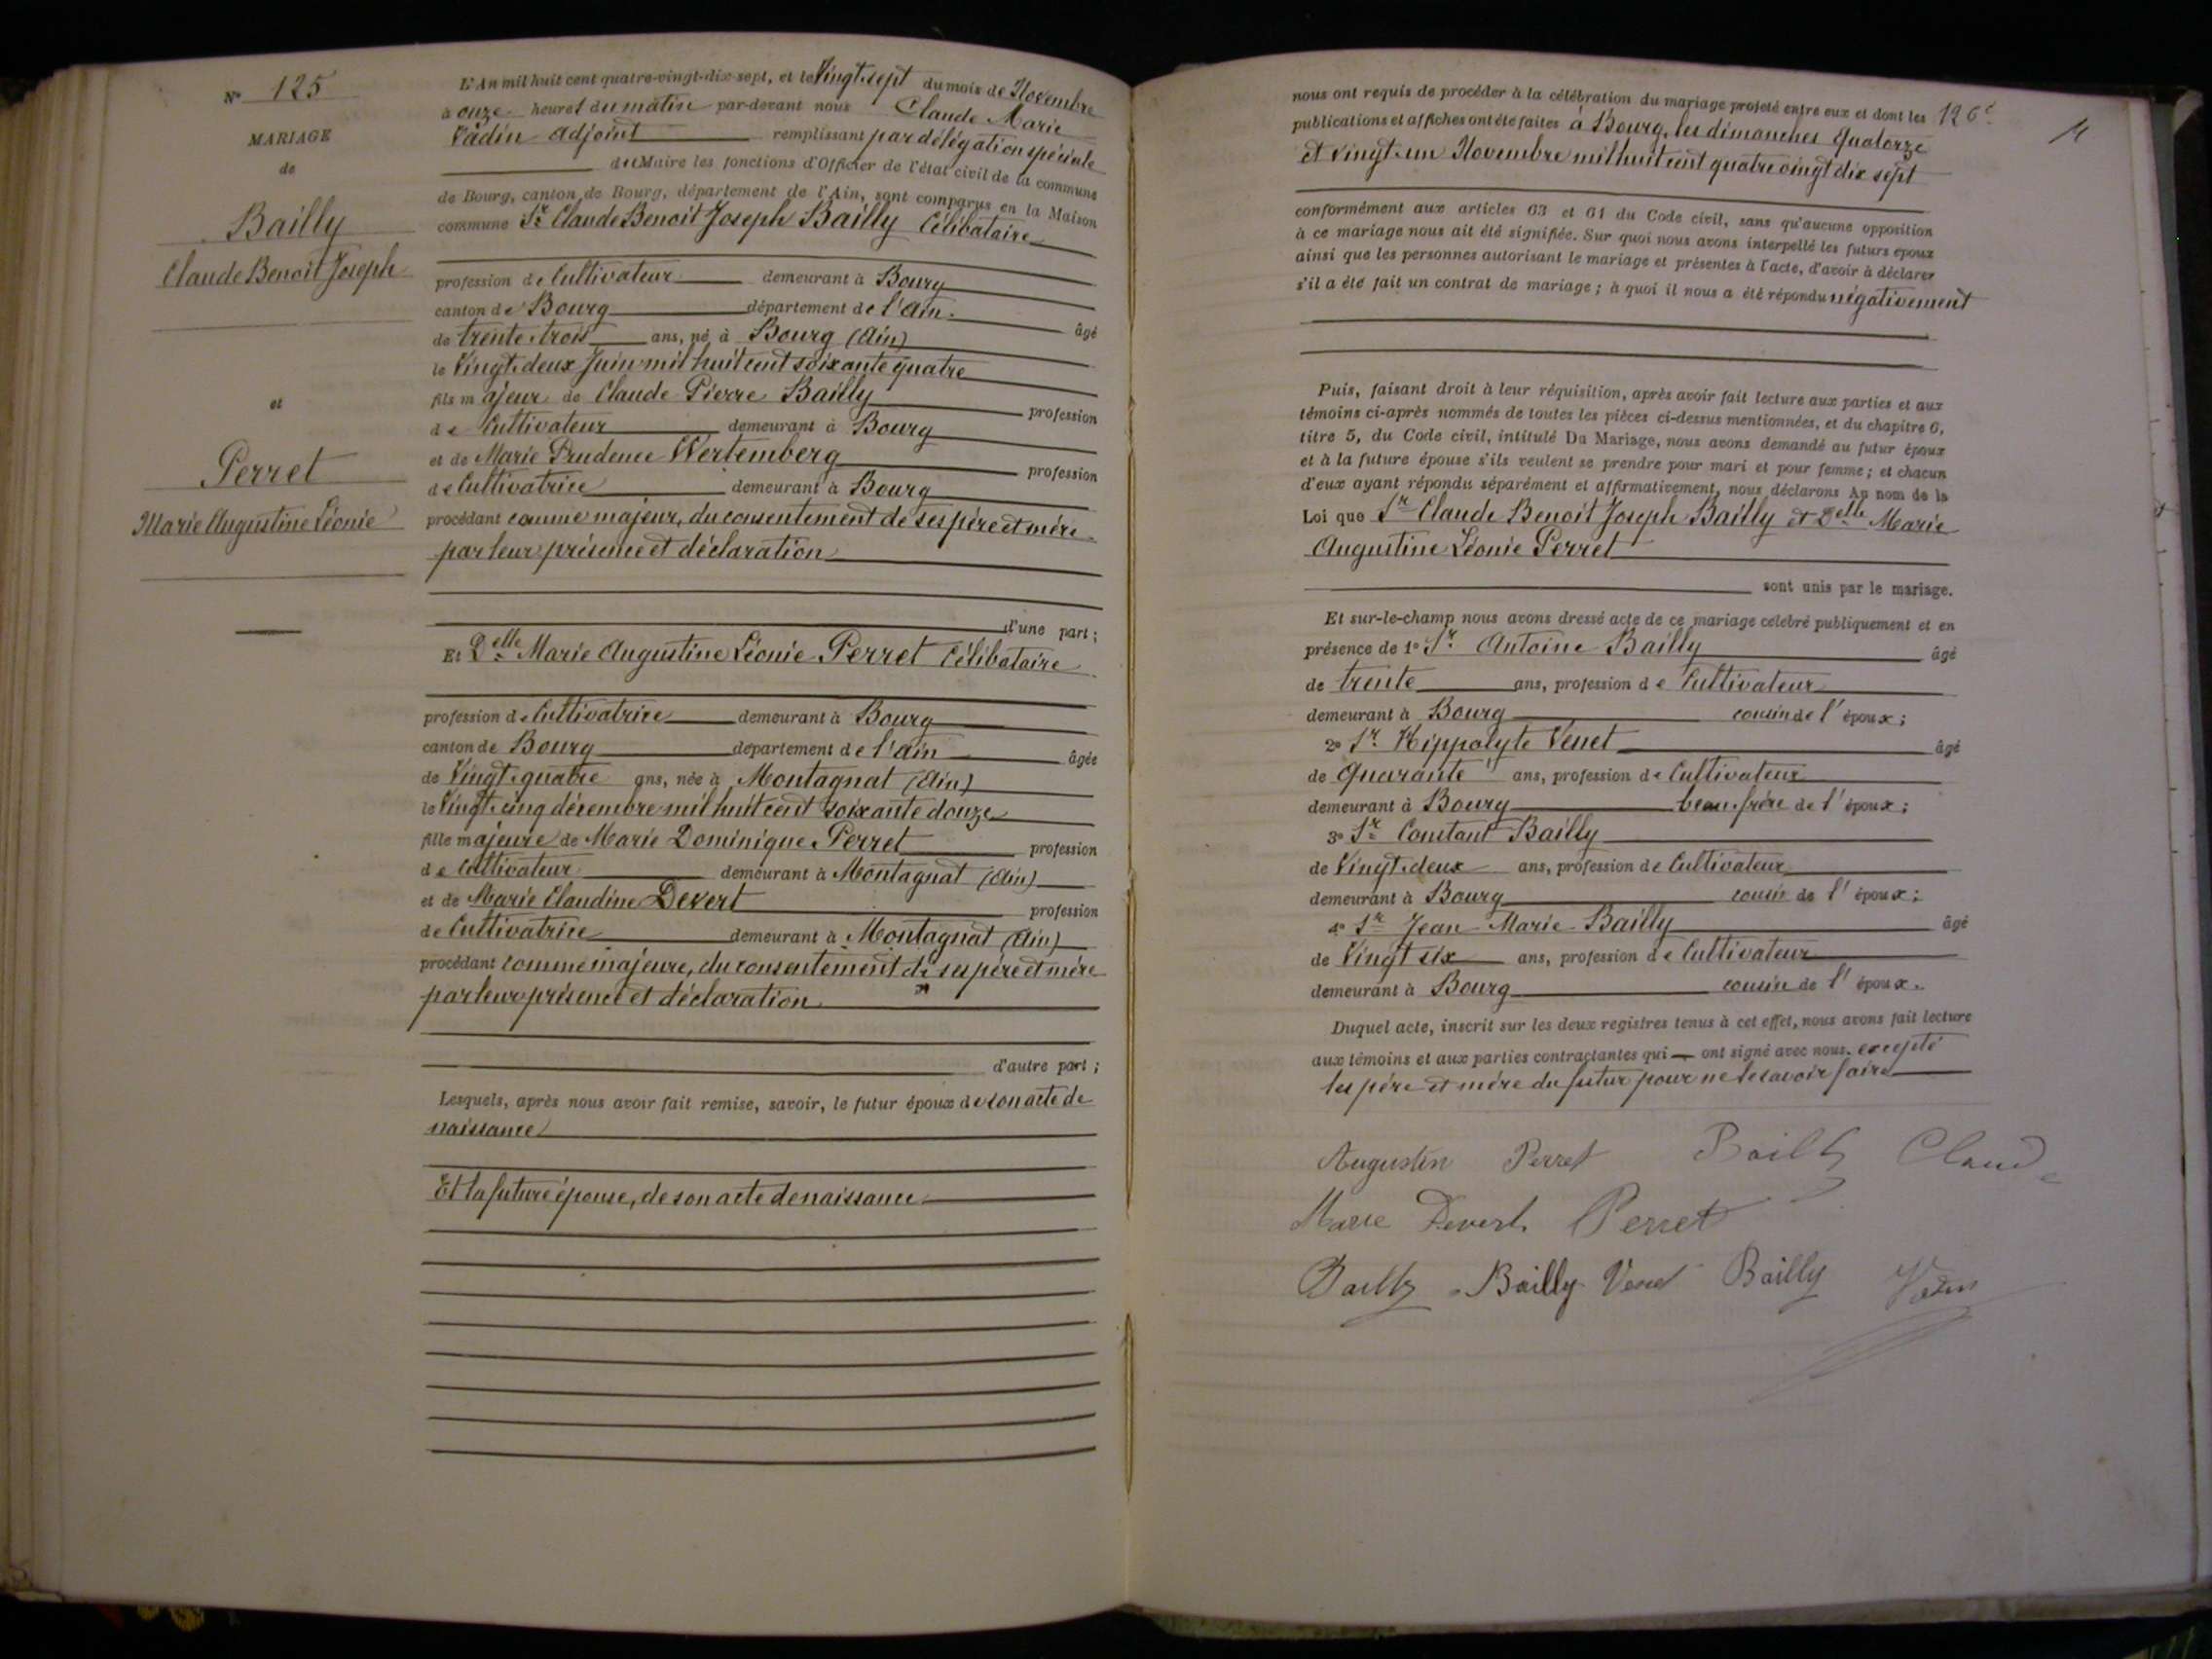 N° 125
MARIAGE
de
Bailly
Claude Benoit Joseph
et
Perret
Marie Augustine Léonie
L'An mil huit cent quatre-vingt-dix-sept, et le Vingt-sept du mois de Novembre
à onze heures du matin par-devant nous Claude Marie
Vadin adjoint remplissant par délégation spéciale
du Maire les fonctions d'Officier de l'état civil de la commune
de Bourg, canton de Bourg, département de l'Ain, sont comparus en la Maison
commune Sr Claude Benoit Joseph Bailly Célibataire
profession de Cultivateur demeurant à Bourg
canton de Bourg département de l'Ain. âgé
de trente trois ans, né à Bourg (Ain)
le Vingt-deux Juin mil huit cent soixante quatre
fils majeur de Claude Pierre Bailly profession
de Cultivateur demeurant à Bourg
et de Marie Prudence Wertemberg profession
de Cultivatrice demeurant à Bourg
procédant comme majeur, du consentement de ses père et mère
par leur présence et déclaration
d'une part;
Et Delle Marie Augustine Léonie Perret Célibataire
profession de Cultivatrice demeurant à Bourg
canton de Bourg département de l'Ain âgée
de Vingt-quatre ans, née à Montagnat (Ain)
le Vingt-cinq décembre mil huit cent soixante douze
fille majeure de Marie Dominique Perret profession
de Cultivateur demeurant à Montagnat (Ain)
et de Marie Claudine Devert profession
de Cultivatrice demeurant à Montagnat (Ain)
procédant comme majeure, du consentement de ses père et mère
par leur présence et déclaration
d'autre part;
Lesquels, après nous avoir fait remise, savoir, le futur époux de son acte de
naissance
Et la future épouse, de son acte de naissance
nous ont requis de procéder à la célébration du mariage projeté entre eux et dont les
126e
publications et affiches ont été faites à Bourg, les dimanches Quatorze
et vingt-un Novembre mil huit cent quatre vingt dix sept
conformément aux articles 63 et 64 du Code civil, sans qu'aucune opposition
à ce mariage nous ait été signifiée. Sur quoi nous avons interpellé les futurs époux
ainsi que les personnes autorisant le mariage et présentes à l'acte, d'avoir à déclarer
s'il a été fait un contrat de mariage; à quoi il nous a été répondu négativement
Puis, faisant droit à leur réquisition, après avoir fait lecture aux parties et aux
témoins ci-après nommés de toutes les pièces ci-dessus mentionnées, et du chapitre 6,
titre 5, du Code civil, intitulé Du Mariage, nous avons demandé au futur époux
et à la future épouse s'ils veulent se prendre pour mari et pour femme; et chacun
d'eux ayant répondu séparément et affirmativement, nous déclarons Au nom de la
Loi que Sr Claude Benoit Joseph Bailly et Delle Marie
Augustine Léonie Perret
sont unis par le mariage.
Et sur-le-champ nous avons dressé acte de ce mariage célébré publiquement et en
présence de 1° Sr Antoine Bailly âgé
de trente ans, profession de Cultivateur
demeurant à Bourg cousin de l'époux;
2° Sr Hippolyte Venet âgé
de Quarante ans, profession de Cultivateur
demeurant à Bourg beau-frère de l'époux;
3° Sr Constant Bailly
de Vingt-deux ans, profession de Cultivateur
demeurant à Bourg cousin de l'époux;
4° Sr Jean Marie Bailly âgé
de Vingt six ans, profession de Cultivateur
demeurant à Bourg cousin de l'époux.
Duquel acte, inscrit sur les deux registres tenus à cet effet, nous avons fait lecture
aux témoins et aux parties contractantes qui ont signé avec nous. excepté
les père et mère du futur pour ne le savoir faire
Augustin Perret Bailly Claude
Marie Devert Perret
Bailly Bailly Venet Bailly Vadin